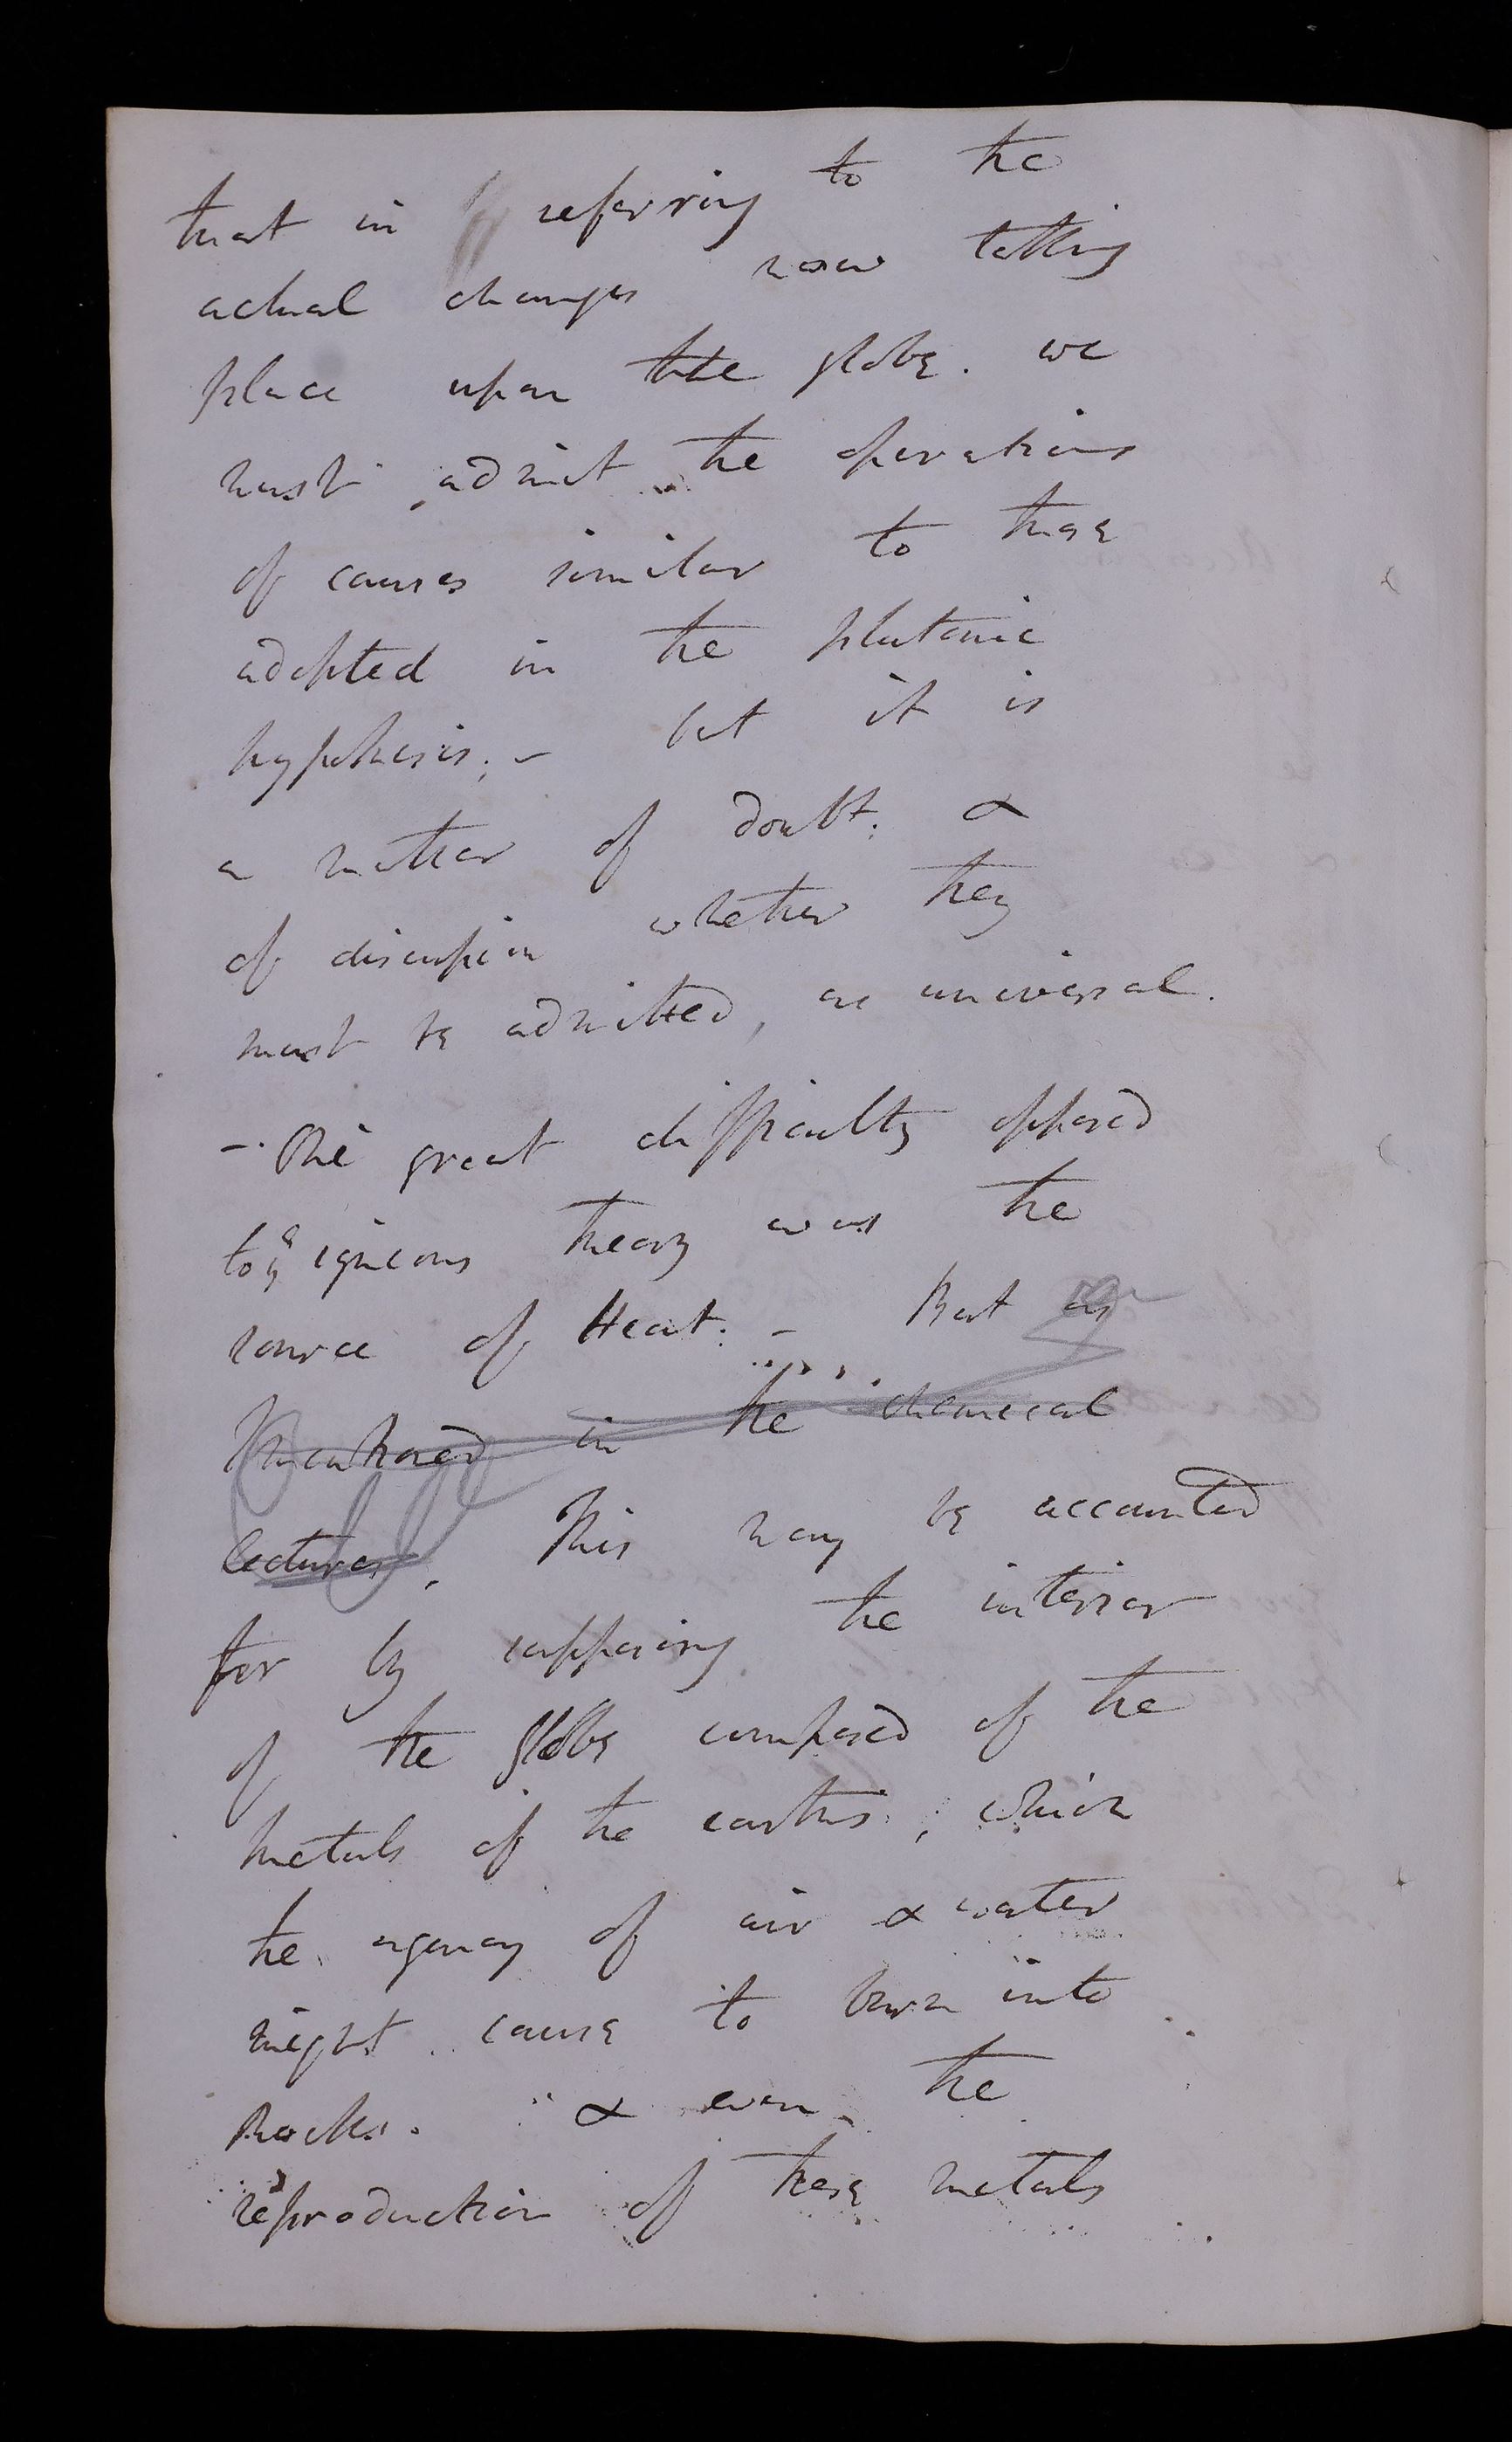 that in referring to the
actual changes now taking
place upon the globe. we
must admit the operations
of causes similar to those
adopted in the plutonic
hypothesis; - but it is
a matter of doubt; &
of discussion whether they
must be admitted, as universal.
-. The great difficulty opposed
to ye igneous theory was the
source of Heat. - But as
Mentioned in the chemical
lectures, This may be accounted
for by supposing the interior
of the globe composed of the
metals of the earths; which
the agency of air & water
might cause to burn into
Rocks. & even the
reproduction of these metals